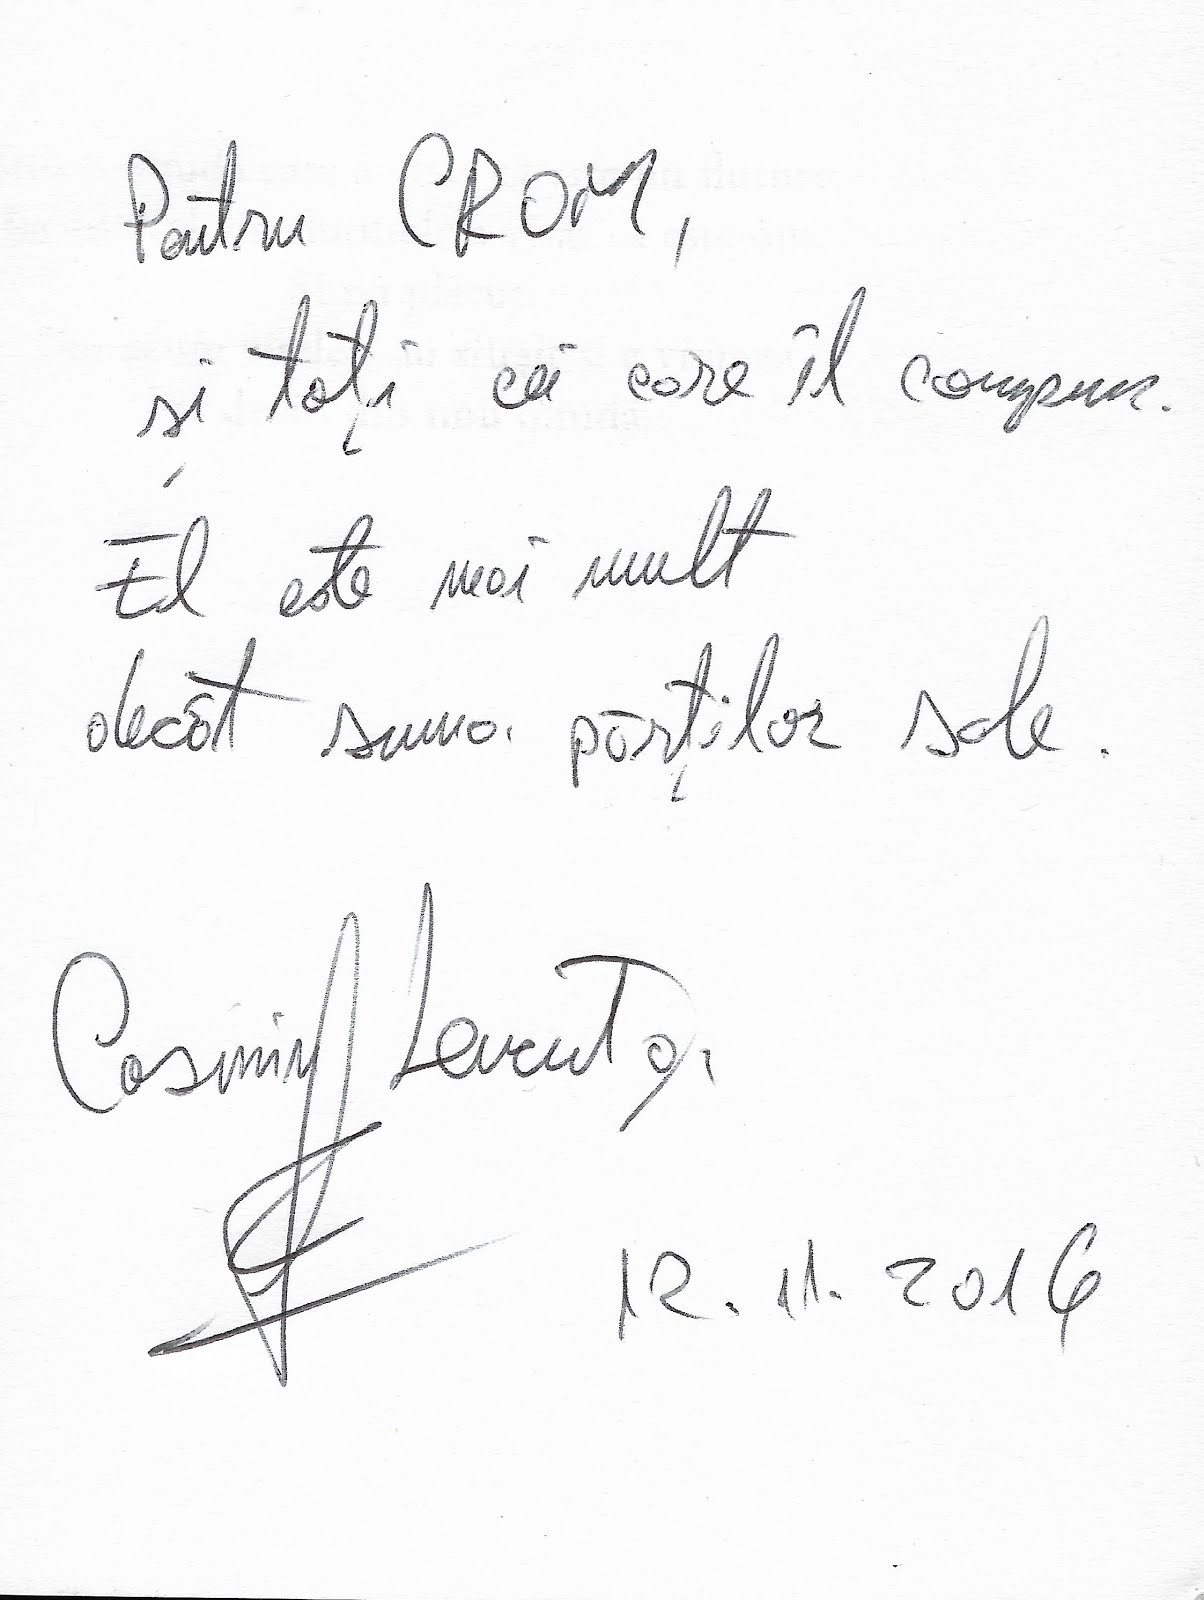 Pentru CROM,
și toți cei care îl compun.
El este mai mult
decât suma părților sale.
Cosmin Leventa
12.11.2016